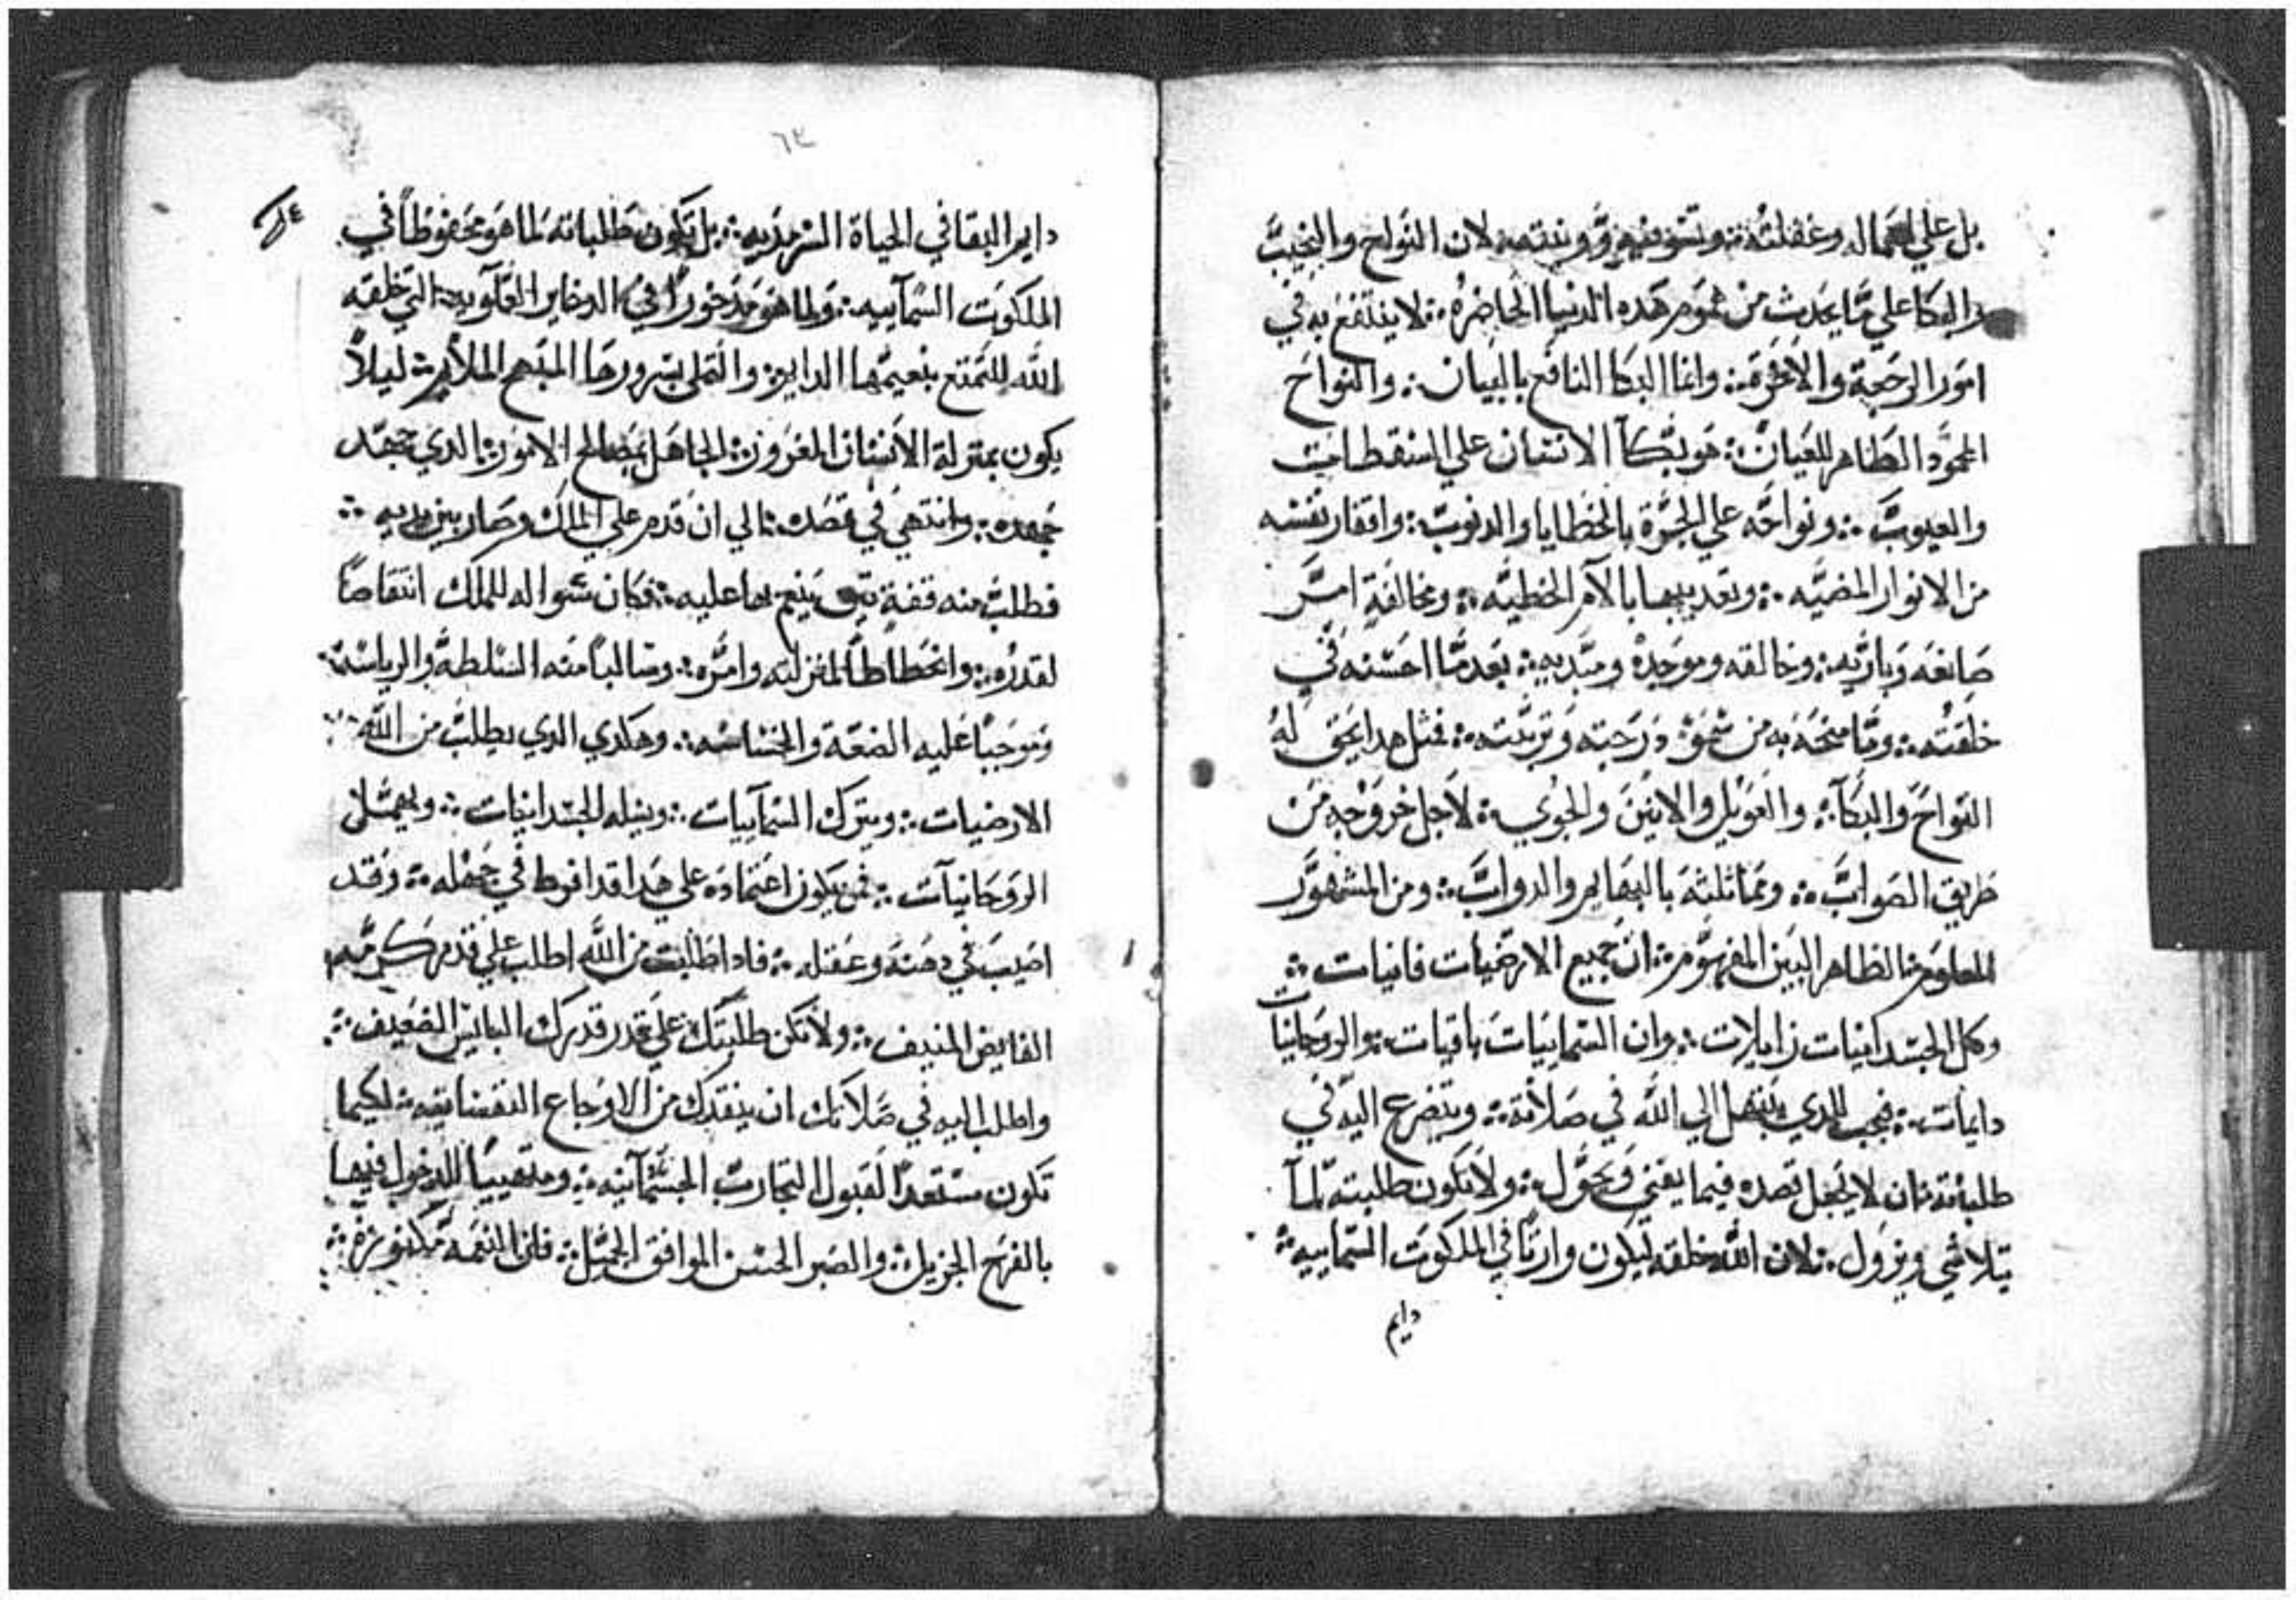 بل علي اهماله وغفلته ∴ وتسويفه وونيته ∴ لان النواح والنحيب
والبكا علي ما يحدث من هموم هده الدنيا الحاضره ∴ لا ينتفع به في
امور الرحجة والاخرة ∴ وانما البكا النافع بالبيان ∴ والنواح
المحمود الظاهر للعيان ∴ هو بكآ الانسان علي السقطات
والعيوب ∴ ونواحه علي الجرة بالخطايا والدنوب ∴ وافقار نفسه
من الانوار المضيه ∴ وتعديبها بالآم الخطيه ∴ ومخالفة امر
صانعه وباريه ∴ وخالقه وموجده ومبديه ∴ بعد ما احسنه في
خلقته ∴ وما منحه به من سمو درجته وتربته ∴ فمثل هدا يحق له
النواح والبكآ ∴ والعويل والانين والجوي ∴ لاجل خروجه من
طريق الصواب ∴ ومماثلته بالبهايم والدواب ∴ ومن المشهور
المعلوم ∴ الظاهر البين المفهوم ∴ ان جميع الارضيات فانيات ∴
وكل الجسدانيات زايلات ∴ وان السماييات باقيات ∴ والروحانيات
دايمات ∴ فيجب للدي يبتهل الي الله في صلاته ∴ ويتضرع اليه في
طلباته ∴ ان لا يجعل قصده فيما يفني ويحول ∴ ولا تكون طلبته لما
يتلاشي ويزول ∴ لان الله خلقه ليكون وارتا في الملكوت السماييه ∴
دايم
٦٣
دايم البقا في الحياة السرمديه ∴ بل تكون طلباته لما هو محفوظا في
الملكوت السمآييه ∴ ولما هو مدخورا في الدخاير العلويه ∴ التي خلقه
الله للتمتع بنعيمها الدايم ∴ والتملي بسرورها المبهج الملايم ∴ ليلا
يكون بمنزلة الانسان المغرور ∴ الجاهل بمصالح الامور ∴ الدي جهد
جهده ∴ وانتهي في قصده ∴ الي ان قدم علي الملك وصار بين يديه ∴
فطلب منه قفة ينعم بها عليه ∴ فكان سواله للملك انتقاصا
لقدره ∴ وانحطاطا لمنزلته وامره ∴ وسالبا منه السلطة والرياسة ∴
وموجبا عليه الضعة والخساسه ∴ وهكدي الدي يطلب من الله ∴
الارضيات ∴ ويترك السمآييات ∴ ويسله الجسدانيات ∴ ويهمل
الروحانيات ∴ فمن يكون اعتماده علي هدا قد افرط في جهله ∴ وقد
اصيب في دهنه وعقله ∴ فادا طلبت من الله اطلب علي قدم كرمه
الفايض المنيف ∴ ولا تكن طلبتك علي قدر قدرك البايس الضعيف ∴
واطلب اليه في صلاتك ان ينقدك من الاوجاع النفسانيه ∴ لكيما
تكون مستعدا لقبول التجارب الجسمانيه ∴ ومتهييا للدخول فيها
بالفرح الجزيل ∴ والصبر الحسن الموافق الجميل ∴ فان النعمه مكنوزة ∴